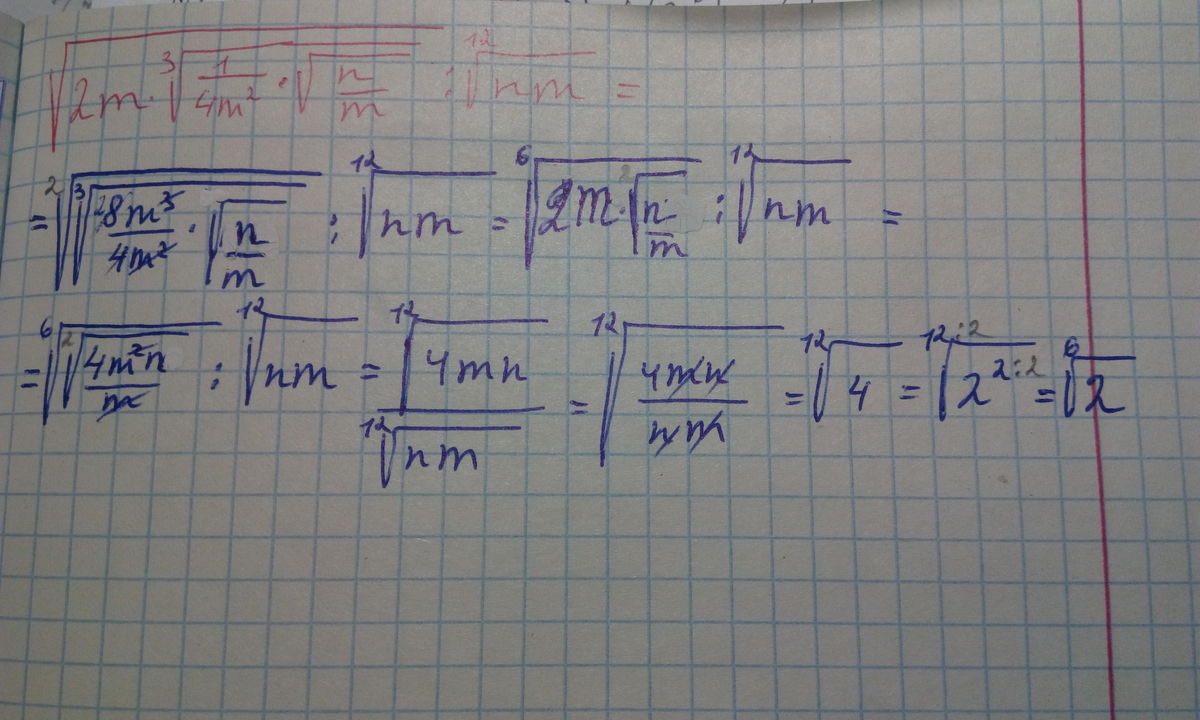 √(2m · ∛(1/(4m²) · √(n/m))) : ¹²√(nm) =
= ²√(∛(8m³/(4m²) · √(n/m))) : ¹²√(nm) = ⁶√(2m · ²√(n/m)) : ¹²√(nm) =
= ⁶√(²√(4m²n/m)) : ¹²√(nm) = ¹²√(4mn)/¹²√(nm) = ¹²√(4mn/(nm)) = ¹²√4 = ¹²:²√(2²:²) = ⁶√2